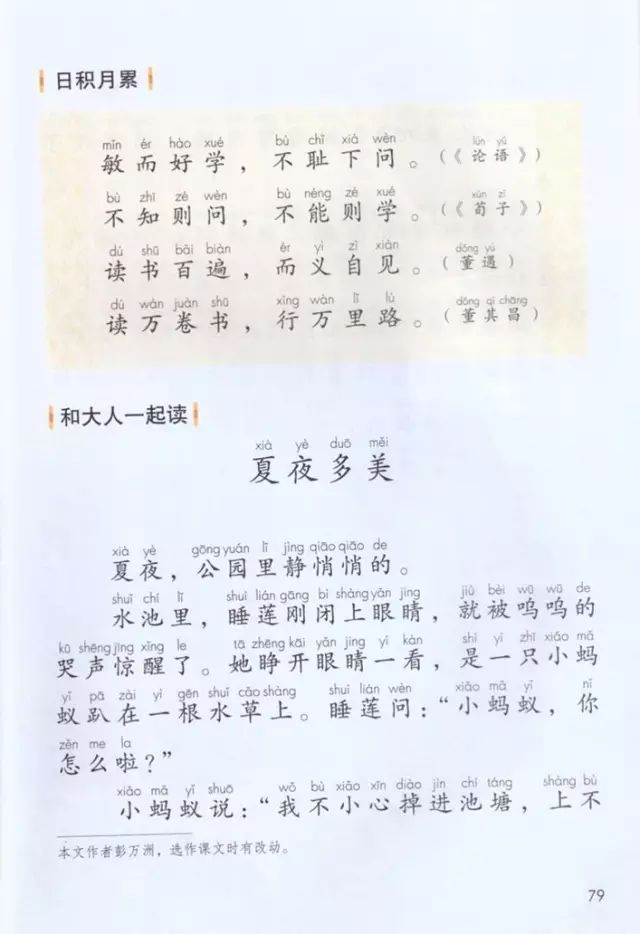 日积月累
mǐn ér hào xué bù chǐ xià wèn lún yǔ
敏而好学，不耻下问。（《论语》）
bù zhī zé wèn bù néng zé xué xún zǐ
不知则问，不能则学。（《荀子》）
dú shū bǎi biàn ér yì zì xiàn dǒng yù
读书百遍，而义自见。（董遇）
dú wàn juàn shū xíng wàn lǐ lù dǒng qí chāng
读万卷书，行万里路。（董其昌）
和大人一起读
xià yè duō měi
夏夜多美
xià yè gōng yuán lǐ jìng qiāo qiāo de
夏夜，公园里静悄悄的。
shuǐ chí lǐ shuì lián gāng bì shàng yǎn jing jiù bèi wū wū de
水池里，睡莲刚闭上眼睛，就被呜呜的
kū shēng jīng xǐng le tā zhēng kāi yǎn jing yí kàn shì yì zhī xiǎo mǎ
哭声惊醒了。她睁开眼睛一看，是一只小蚂
yǐ pā zài yì gēn shuǐ cǎo shàng shuì lián wèn xiǎo mǎ yǐ nǐ
蚁趴在一根水草上。睡莲问：“小蚂蚁，你
zěn me la
怎么啦？”
xiǎo mǎ yǐ shuō wǒ bù xiǎo xīn diào jìn chí táng shàng bù
小蚂蚁说：“我不小心掉进池塘，上不
本文作者彭万洲，选作课文时有改动。
79